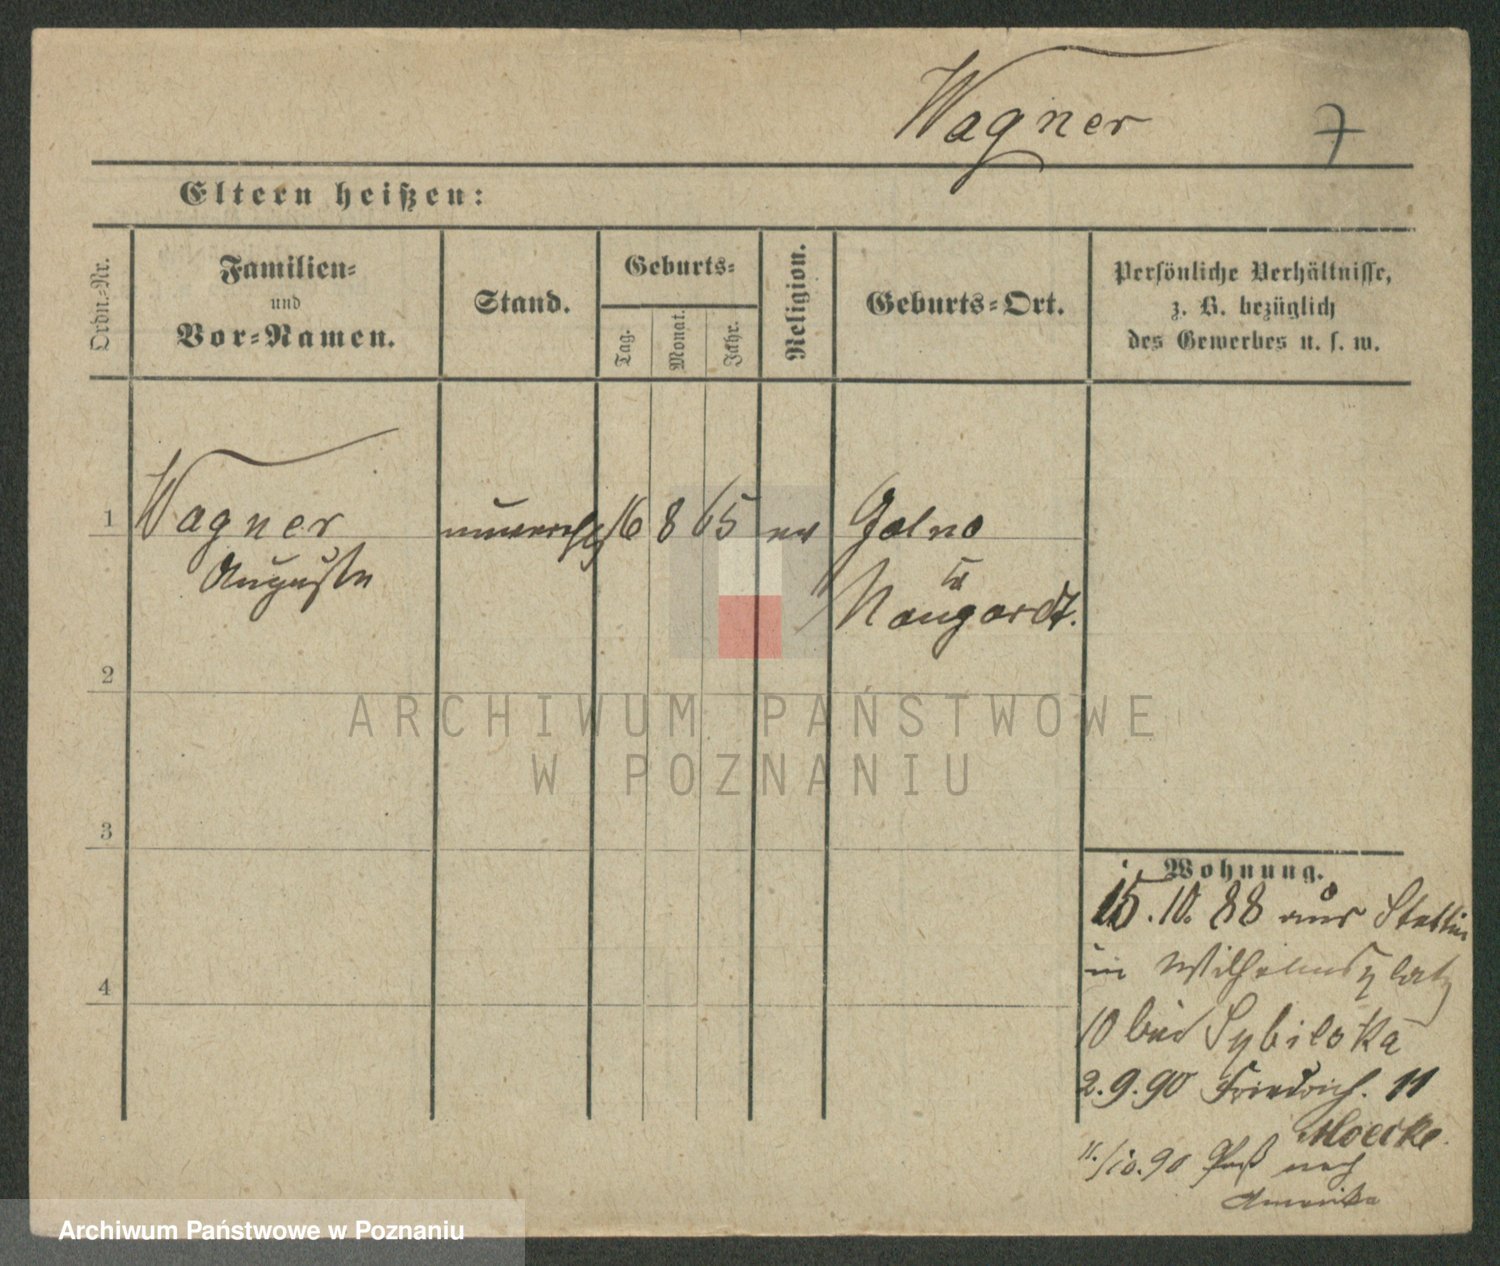 Wagner 7
Eltern heißen:
Ordn.-Nr.
Familien-
und
Vor-Namen.
Stand.
Geburts-
Tag.
Monat.
Jahr.
Religion.
Geburts-Ort.
Persönliche Verhältnisse,
z. B. bezüglich
des Gewerbes u. s. w.
1 Wagner unverehel 16 8 65 ev Golno
Auguste
Naugardt.
2
3
4
Wohnung.
15.10.88 aus Stettin
in Wilhelmsplatz
10 bei Sybilska
2.9.90 Friedrich. 11
11./10.90 Paß nach
Amerika
ARCHIWUM PAŃSTWOWE
W POZNANIU
Archiwum Państwowe w Poznaniu